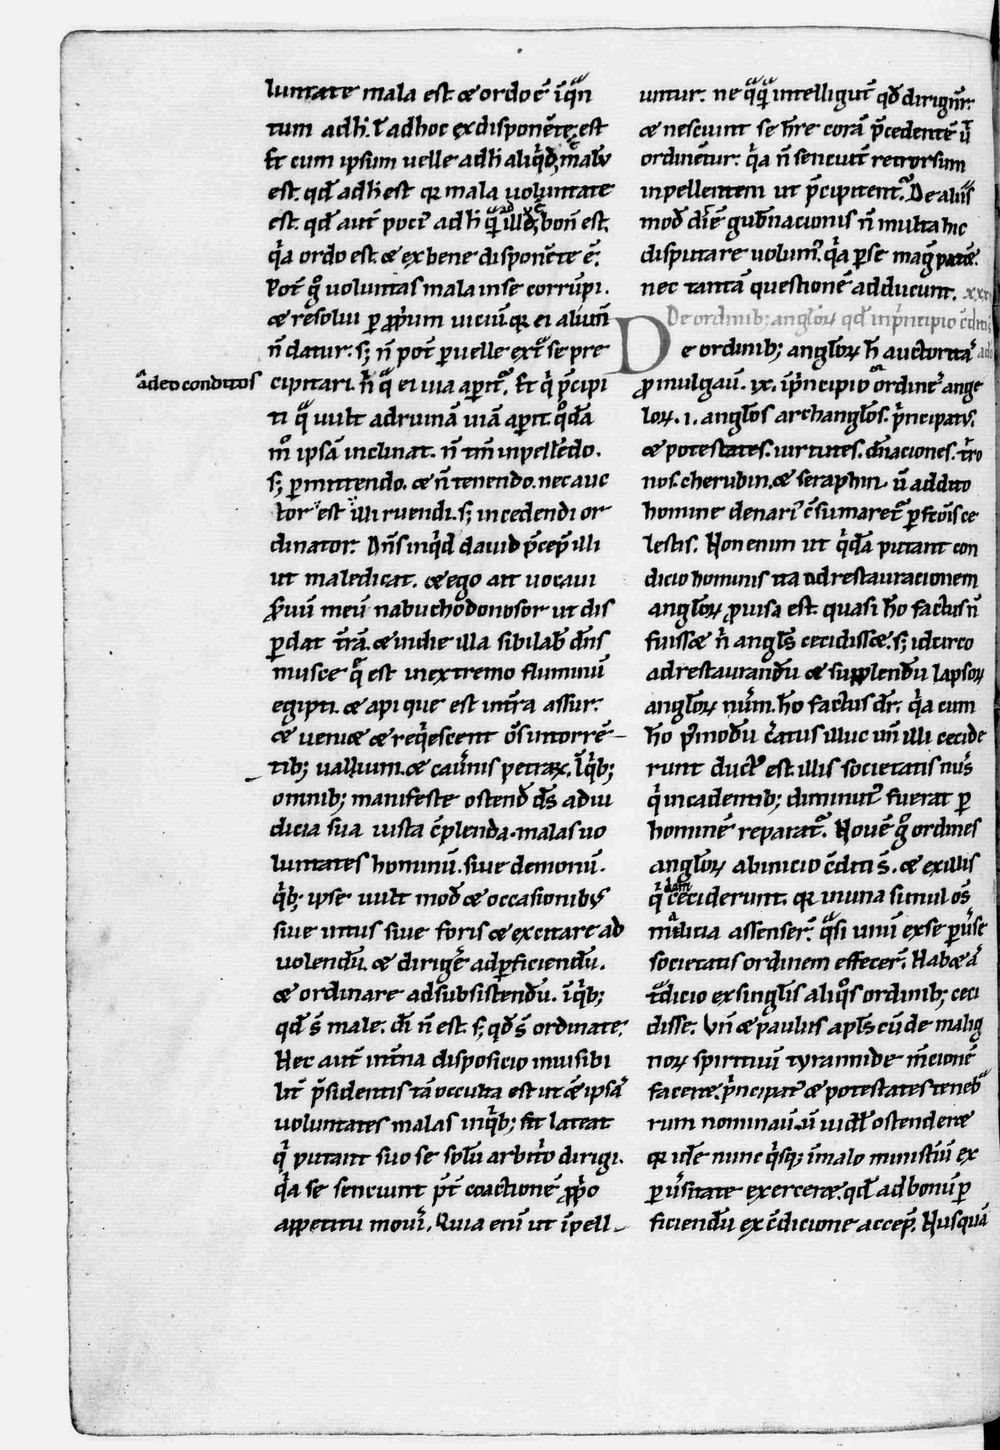 luntate mala est & ordo ē īq̄n
tum adh̄. ł adhoc exdisponēte est
Et cum ipsum uelle adh̄ aliq̇d, malū
est. qd̄ adh̄ est qꝛ mala uoluntate
est. qd̄ aut̄ poci᷒ adh̄ bon̄ est.
q̇a ordo est. & exbene disponēte ē.
Pot̄ gͦ uoluntas mala inse corrūpi.
& resolui ꝑ ꝓp̄um uiciū. qꝛ ei aliun̄
n̄ datur. sꝫ n̄ pot̄ ꝑuelle ext̄ se pre
ādeo conditos
cipitari. ei uia aꝑit᷒. Et q̇ p̄cipi
ti uult adruinā uiā aꝑit. qͦdā
mͦ ipsā inclinat. n̄ tm̄ inpellēdo.
sꝫ ꝑmittendo. & n̄ tenendo. nec auc
tor est illi ruendi. sꝫ incedendi or
dinator. Dn̄s inq̇d dauid p̄cep̄ illi
ut maledicat. & ego ait uocaui
ẜuū meū nabuchodonosor ut dis
ꝑdat t̄rā. & indie illa sibilab̄ dn̄s
musce q̄ est inextremo fluminū
egipti. & api que est int̄ra assur.
& ueni& & req̇escent ōs intorrē
tibꝫ uallium. & cau̇nis petraꝝ. Iq̇bꝫ
omnibꝫ manifeste ostend̄ ds̄ adiu
dicia sua iusta c̄plenda. malas uo
luntates hominū. siue demonū.
q̇bꝫ ipse uult mod̄ & occasionibꝫ
siue intus siue foris & excitare ad
uolendū. & dirigēr adꝑficiendū.
& ordinare adsubsistendū. īq̇bꝫ
qd̄ s̄ male. di n̄ est. sꝫ qd̄ s̄ ordinate.
Hec aut̄ int̄na disposicio inuisibi
lit̄ p̄sidentis tā occulta est ut & ipsā
uoluntates malas inq̇bꝫ fit lateat
q̇ putant suo se solū arbit̓o dirigi.
q̇a se senciunt p̄t̄ coactionē ꝓp̓o
appetitu mou̓i. Quia enī ut īpell
untur. ne intelligūt qd̄ dirigūr.
& nesciunt se h̄re corā p̄cedentē ū
ordinētur. q̇a n̄ senciūt retrorsum
inpellentem ut p̄cipitent᷒. De aliis
mod̄ diē gub̄nacionis n̄ multa hic
disputare volum᷒. q̇a ꝑse mag̓ patēt.
nec tantā questionē adducunt. xxx
De ordinibꝫ angl̄oꝝ qd̄ inp̓ncipio c̄diti s̄
De ordinibꝫ angl̄oꝝ h̄ auctorita᷒
ꝓmulgaū. ix. ip̓ncipio ordine᷒ ange
loꝝ. i. angl̄os archangl̄os. p̓ncipat᷒.
& potestates. uirtutes. dn̄aciones. t̓ro
nos. cherubin. & seraphin. ū addito
homine denari᷒ c̄sumaret᷒ ꝑfc̄ois ce
lestis. Non enim ut q̇dā putant con
dicio hominis ita adrestauracionem
angl̄oꝝ ꝓuisa est. quasi h̄o factus n̄
fuiss& n̓ angl̄s cecidiss&. sꝫ idcirco
adrestaurandū & supplendū lapsoꝝ
angl̄oꝝ nūm. h̄o factus dr̄. q̇a cum
h̄o p̓modū c̓atus illuc un̄ illi cecide
runt duct᷒ est. illis societatis nūs
q̇ incadentibꝫ diminut᷒ fuerat ꝑ
hominē reparat᷒. Nouē gͦ ordines
angl̄oꝝ abinicio c̄diti s̄. & exillis
q̇dam ceciderunt. qꝛ inuna simul os̄
malicia assenser̄. qᵃsi unū exse ꝑūse
societatis ordinem effecer̄. Hab& a᷒
t̄dicio exsingl̄is aliq̇s ordinibꝫ ceci
disse. Vn̄ & paulus apl̄s cū de malig
noꝝ spirituū tyrannide m̄cionē
facer&. p̓ncipat᷒ & potestates teneb
rum nominauit. ū uid̄ł ostendere
qꝛ idē nunc q̇sqꝫ īmalo ministiū ex
ꝑu̓sitate exercere. qd̄ ad bonū ꝑ
ficiendū ex c̄dicione accep̄. Husquā